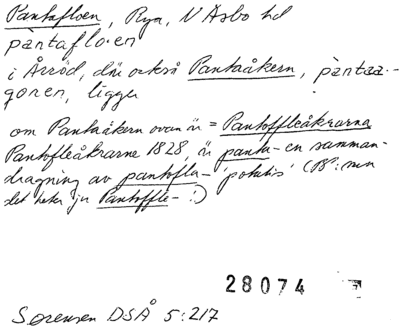 Pantafloen, Rya, N Åsbo hd
pàntafloen
i Årröd, där också Pantaåkern, pàntaa-
goren, ligger
om Pantaåkern ovan är = Pantoffleåkrarna
Pantofleåkrarne 1828, är panta- en samman-
dragning av pantofla- 'potatis' (P: men
det heter ju Pantoffle- !)
28074
Sørensen DSÅ 5:217